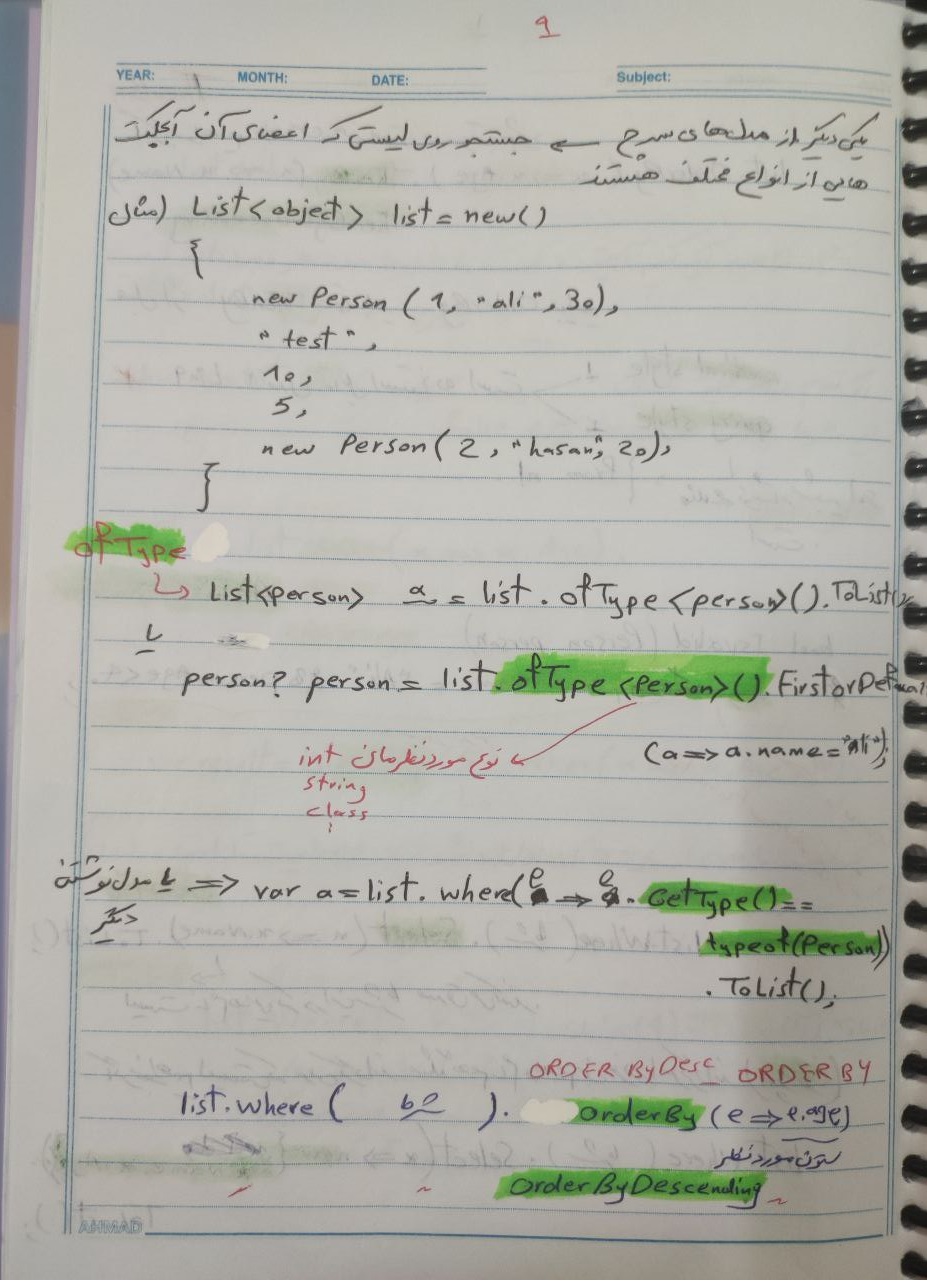 9
YEAR: MONTH: DATE: Subject:
یکی دیگر از مدل‌های سرچ ← جستجو روی لیستی که اعضای آن آبجکت
هایی از انواع مختلف هستند
مثل) List<object> list = new()
{
new Person (1, "ali", 30),
"test",
10,
5,
new Person (2, "hasan", 20),
}
ofType
↳ List<person> a = list.ofType<person>().ToList();
یا
person? person = list.ofType<Person>().FirstorDefault
(a => a.name = "ali");
نوع مورد نظرمان int
string
class
⋮
یا مدل نوشته => var a = list.where(e => e.GetType() ==
دیگر
typeof(Person))
.ToList();
ORDER ByDesc ORDER BY
list.where ( شرط ). orderBy (e => e.age)
ستون مورد نظر
orderByDescending ~
AHMAD